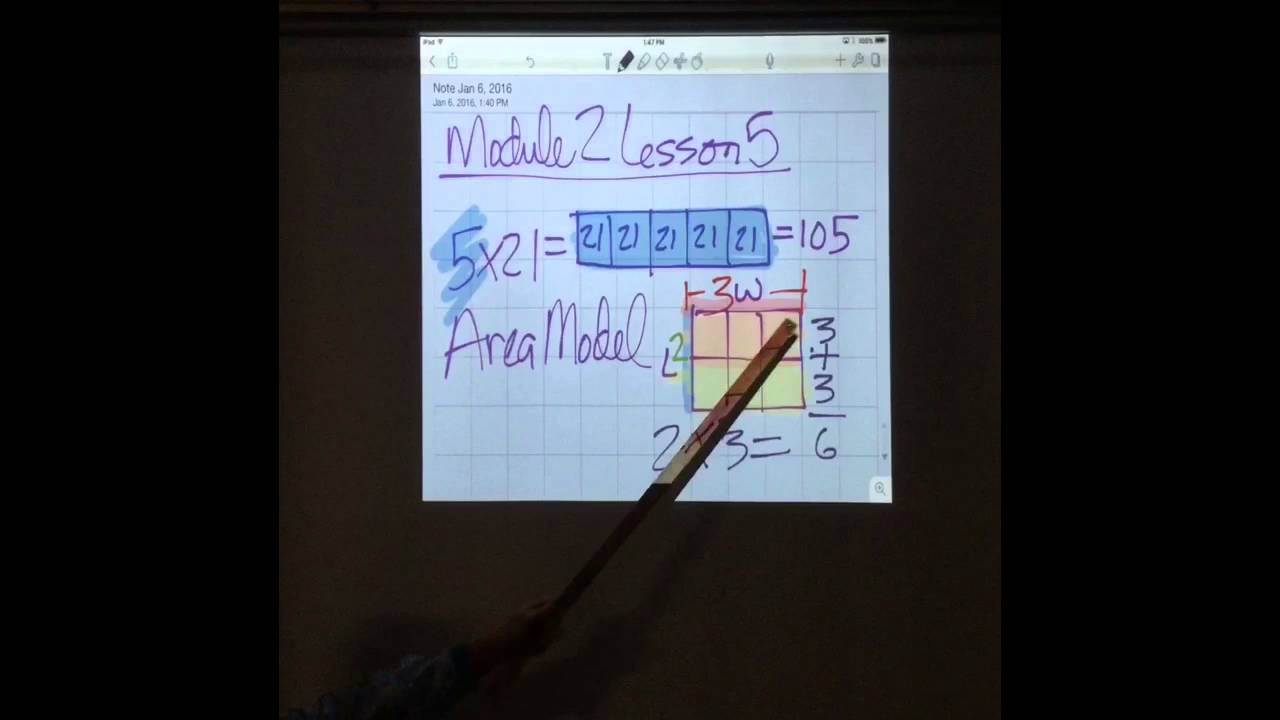 iPad 1:47 PM 100%
T
Note Jan 6, 2016
Jan 6, 2016, 1:40 PM
Module 2 Lesson 5
5x21= 21 21 21 21 21 =105
3w
Area Model
2
L
3
+
3
6
2x3=